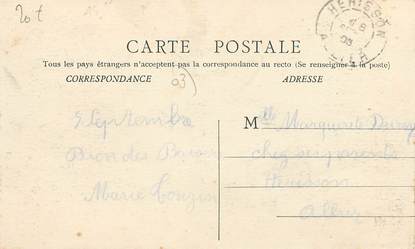 20t
HERISSON
CARTE POSTALE
Tous les pays étrangers n'acceptent pas la correspondance au recto (Se renseigner à la poste)
CORRESPONDANCE
ADRESSE
03)
5 Septembre
Bien des
Marie
Mlle Marguerite
chez ses parents
Hérisson
Allier